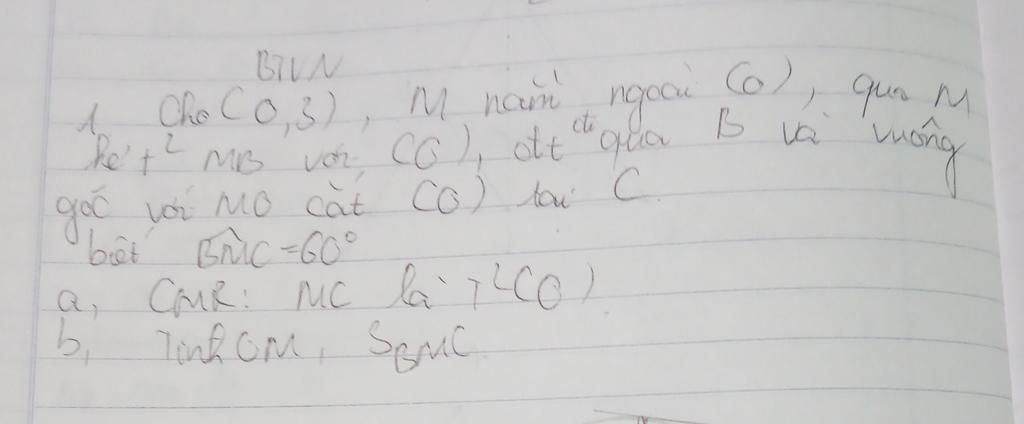 BTVN
1, Cho (O,3), M nằm ngoài (O), qua M
kẻ t² MB với (O), đtt đi qua B và vuông
góc với MO cắt (O) tại C.
biết BMC=60°
a, CMR: MC là T²(O)
b, Tính OM, S_BMC